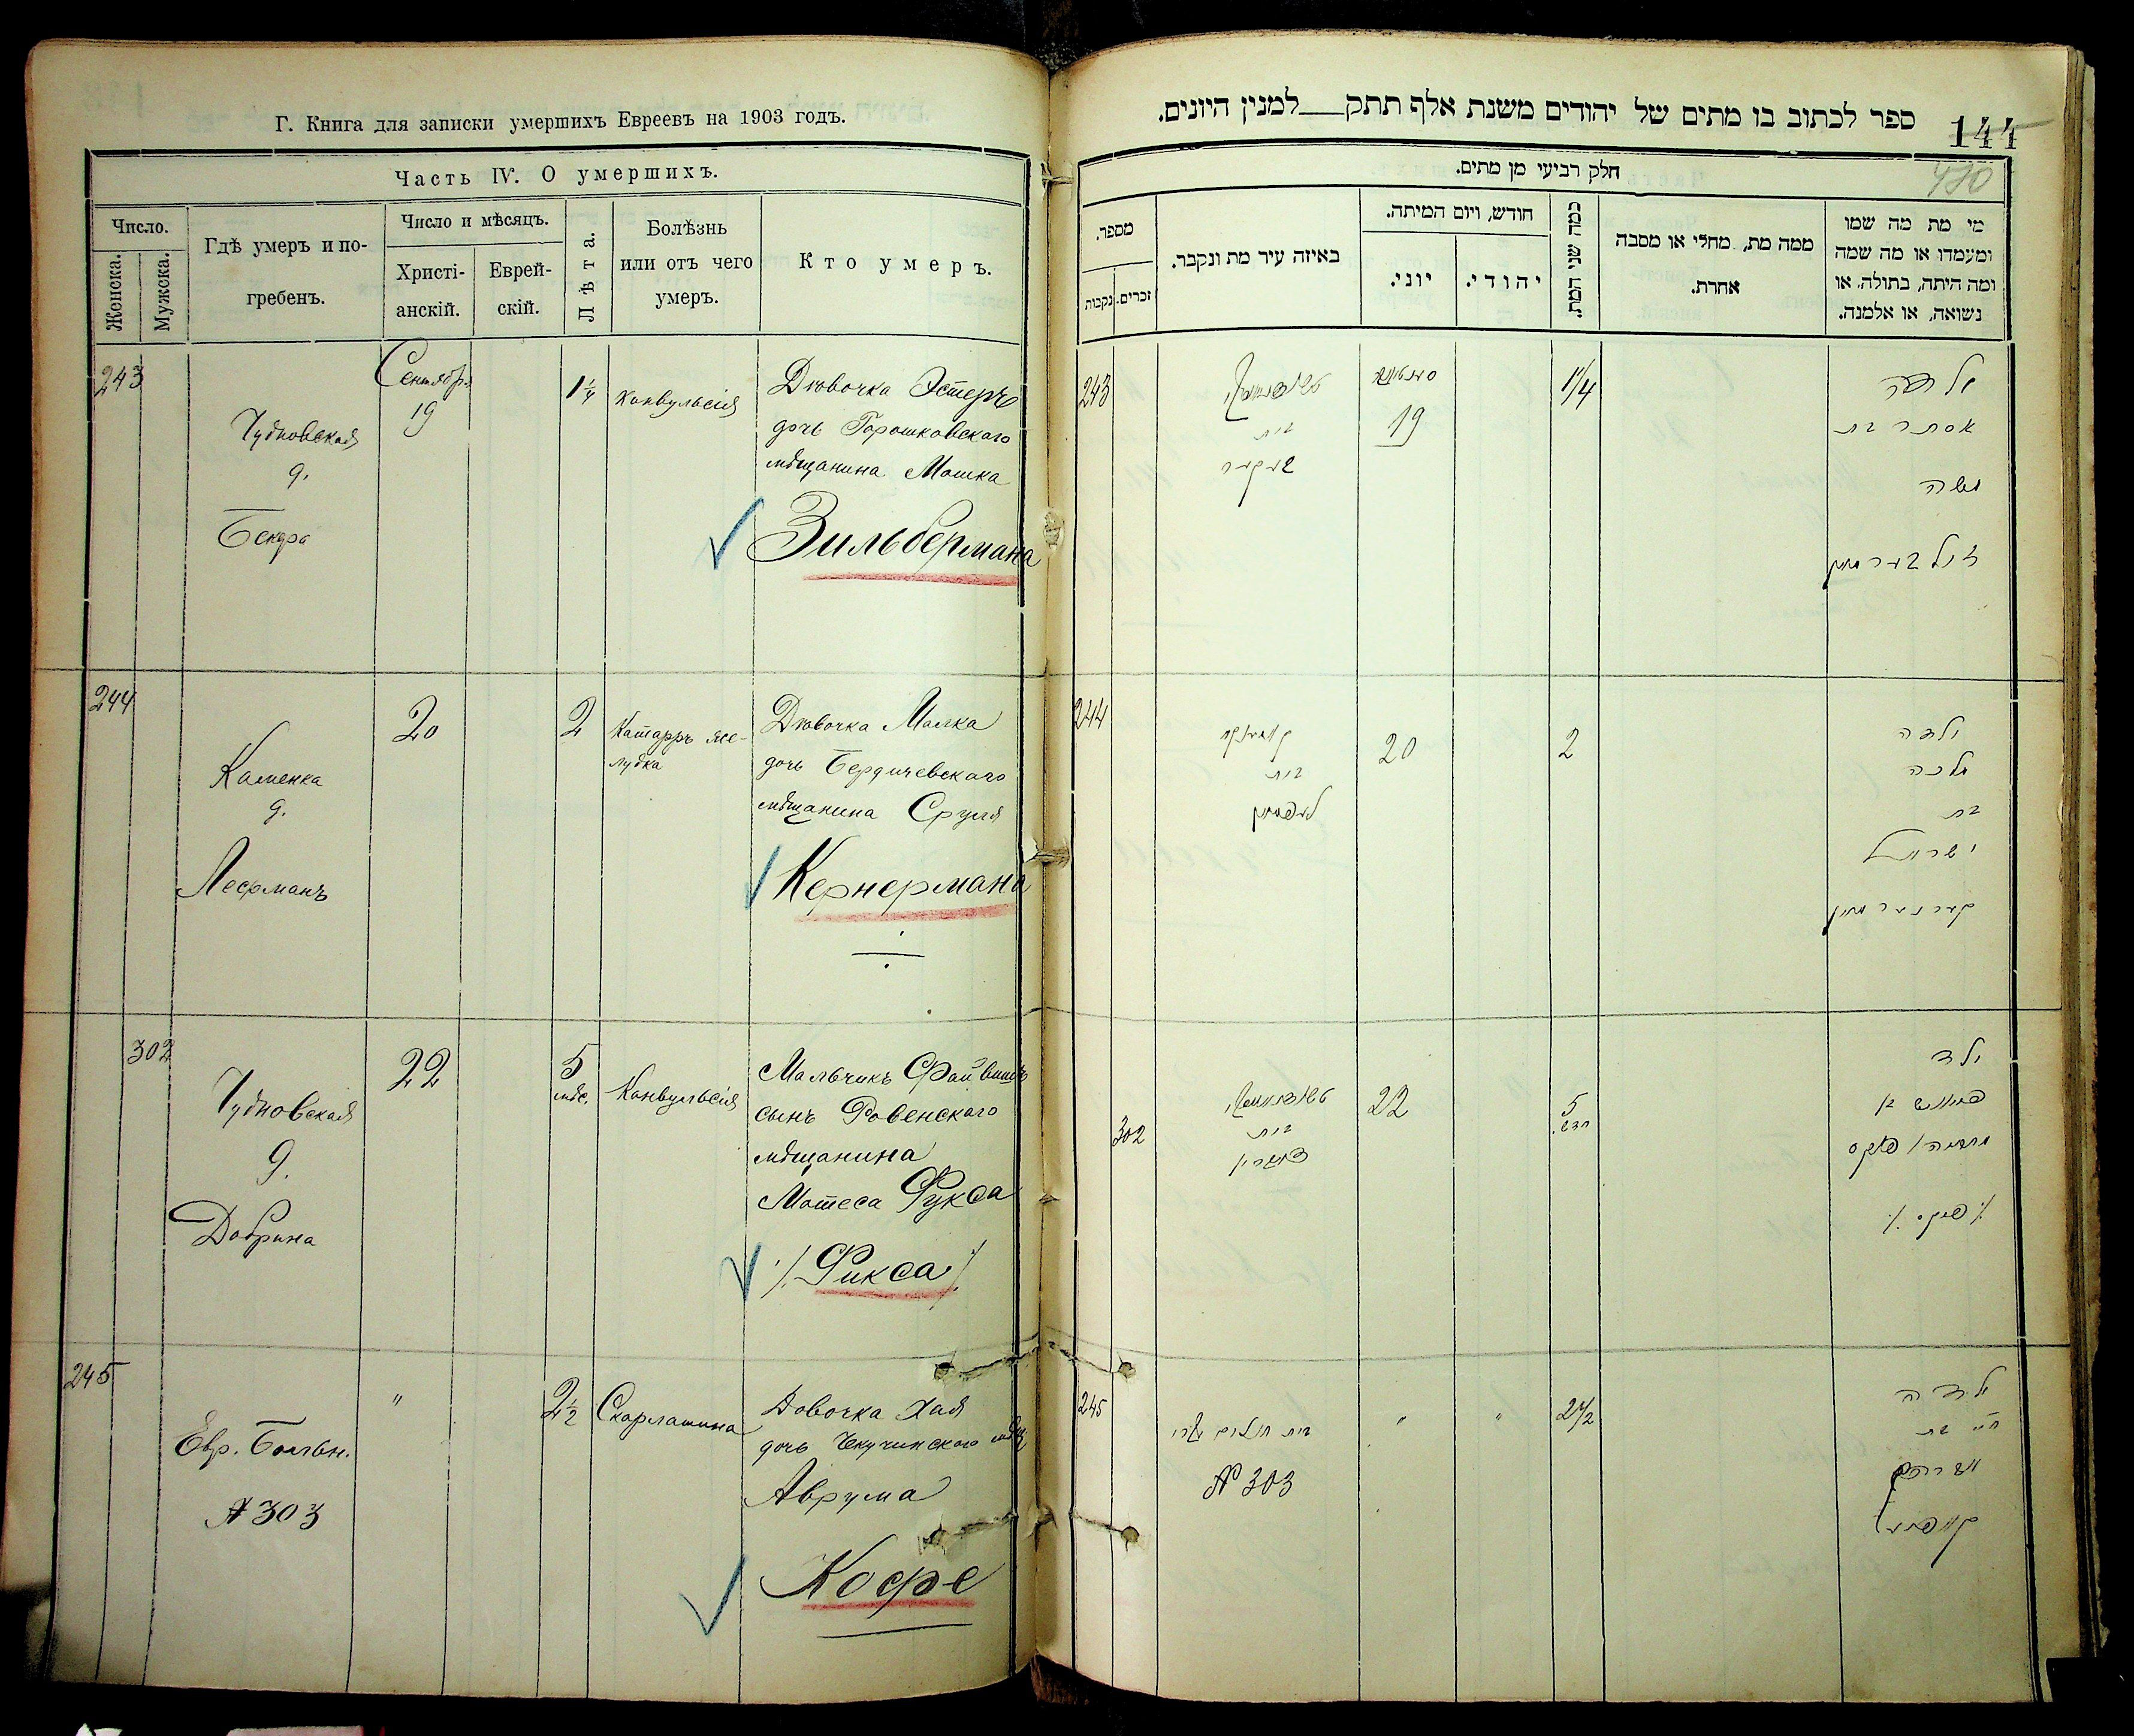 Г. Книга для записки умершихъ Евреевъ на 1903 годъ.
Часть IV. О умершихъ.
Число.
Женска.
Мужска.
Гдѣ умеръ и по-
гребенъ.
Число и мѣсяцъ.
Христі-
анскій.
Еврей-
скій.
Лѣта.
Болѣзнь
или отъ чего
умеръ.
Кто умеръ.
243
Чудновская
д.
Бекера
Сентябр.
19
1 1/4
Конвульсія
Дѣвочка Эстеръ
дочь Горошковскаго
мѣщанина Мошка
Зильбермана
244
Каменка
д.
20
2
Катарръ же-
лудка
Дѣвочка Малка
дочь Бердичевскаго
мѣщанина Сруля
Кернермана
302
Чудновская
д.
Добрина
22
5
мѣс.
Конвульсія
Мальчикъ Файвишъ
сынъ Ровенскаго
мѣщанина
Мотеса Фукса
/Фикса/
245
Евр. Больн.
№ 303
"
2 1/2
Скарлатина
Дѣвочка Хая
дочь мѣщ
Аврума
Кофе
ספר לכתוב בו מתים של יהודים משנת אלף תתק___למנין היונים.
144
470
חלק רביעי מן מתים.
מספר.
נקבות
זכרים.
באיזה עיר מת ונקבר.
חודש, ויום המיתה.
יוני.
יהודי.
כמה שני המת.
ממה מת, מחלי או מסבה
אחרת.
מי מת מה שמו
ומעמדו או מה שמה
ומה היתה, בתולה, או
נשואה, או אלמנה.
243
בית
בעקער
19
1 1/4
ילדה
אסתר בת
משה
זילבערמאן
244
בית
20
2
ילדה
מלכה
בת
ישראל
קערנערמאן
302
בית
22
5
חדש.
ילד
פייוויש בן
פוקס
/פיקס/
245
בית חולים
№ 303
"
"
2 1/2
ילדה
חי' בת